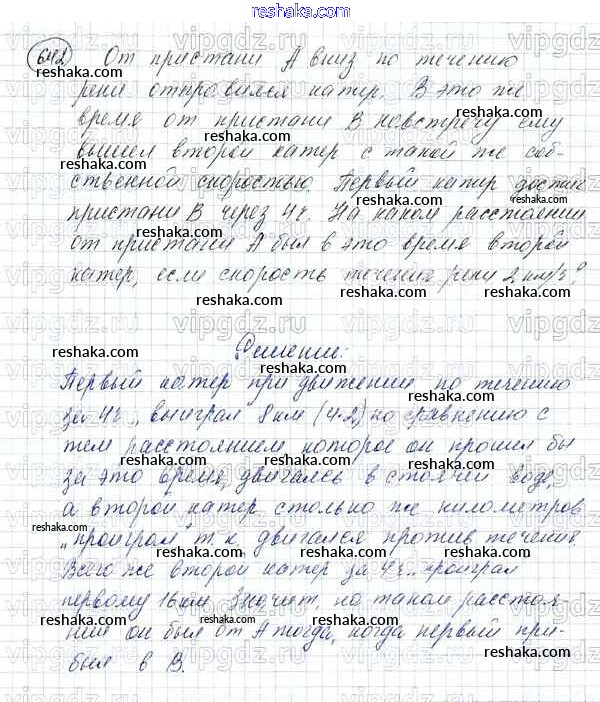 reshaka.com
642 От пристани А вниз по течению
реки отправился катер. В это же
время от пристани В навстречу ему
вышел второй катер с такой же соб-
ственной скоростью. Первый катер достиг
пристани В через 4 г. На каком расстоянии
от пристани А был в это время второй
катер, если скорость течения реки 2 км/г?
Решение:
Первый катер при движении по течению
за 4 г., выиграл 8 км (4·2) по сравнению с
тем расстоянием которое он прошел бы
за это время, двигаясь в стоячей воде,
а второй катер столько же километров
„проиграл" т. к. двигался против течения.
Всего же второй катер за 4 г. проиграл
первому 16 км. Значит, на таком расстоя-
нии он был от А тогда, когда первый при-
был в В.